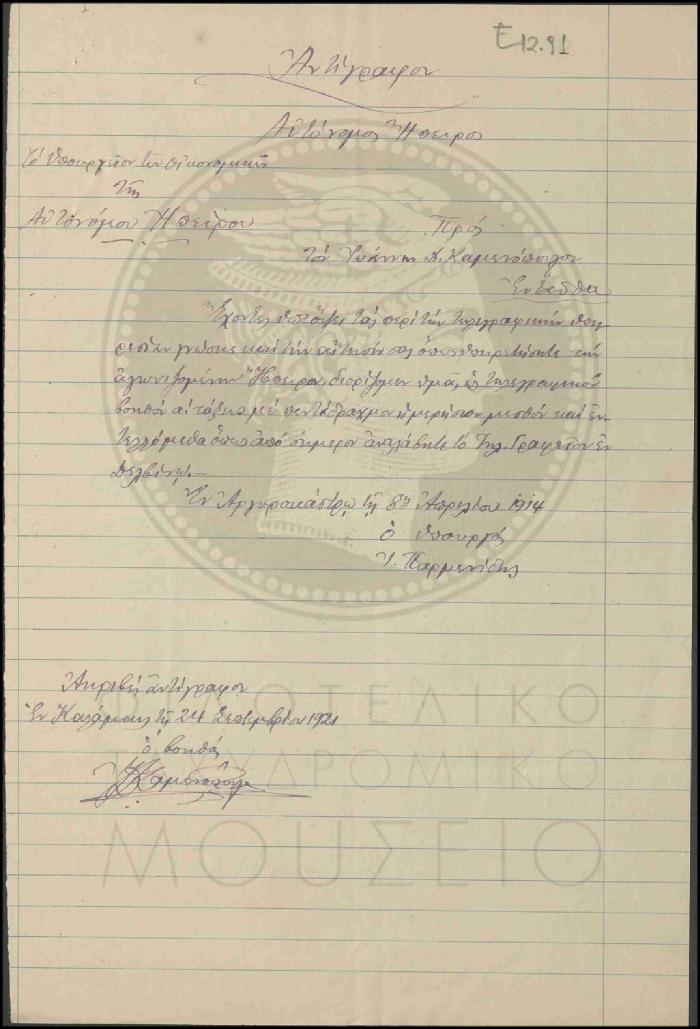 Ε12.91
Ἀντίγραφον
Αὐτόνομος Ἤπειρος
Τὸ Ὑπουργεῖον τῶν Οἰκονομικῶν
τῆς
Αὐτονόμου Ἠπείρου
Πρός
τὸν Ἰωάννην Δ. Καμενόπουλον
Ἐνταῦθα
Ἔχοντες ὑπ' ὄψει τὰς περὶ τὴν τηλεγραφικὴν ὑπη-
ρεσίαν γνώσεις καὶ τὴν αἴτησίν σας ὅπως ὑπηρετήσητε τὴν
ἀγωνιζομένην Ἤπειρον, διορίζομεν ὑμᾶς ὡς τηλεγραφικὸν
βοηθὸν αʹ τάξεως μὲ πεντάδραχμον ἡμερήσιον μισθὸν καὶ ἐν-
τελλόμεθα ὅπως ἀπὸ σήμερον ἀναλάβητε τὸ Τηλ. Γραφεῖον ἐν
Δελβίνῳ.—
Ἐν Ἀργυροκάστρῳ τῇ 8ῃ Ἀπριλίου 1914
ὁ Ὑπουργός
Ἰ. Παρμενίδης
Ἀκριβὲς ἀντίγραφον
Ἐν Καλάμαις τῇ 24 Σεπτεμβρίου 1921
ὁ βοηθός
ΤΑΧΥΔΡΟΜΙΚΟ
ΜΟΥΣΕΙΟ